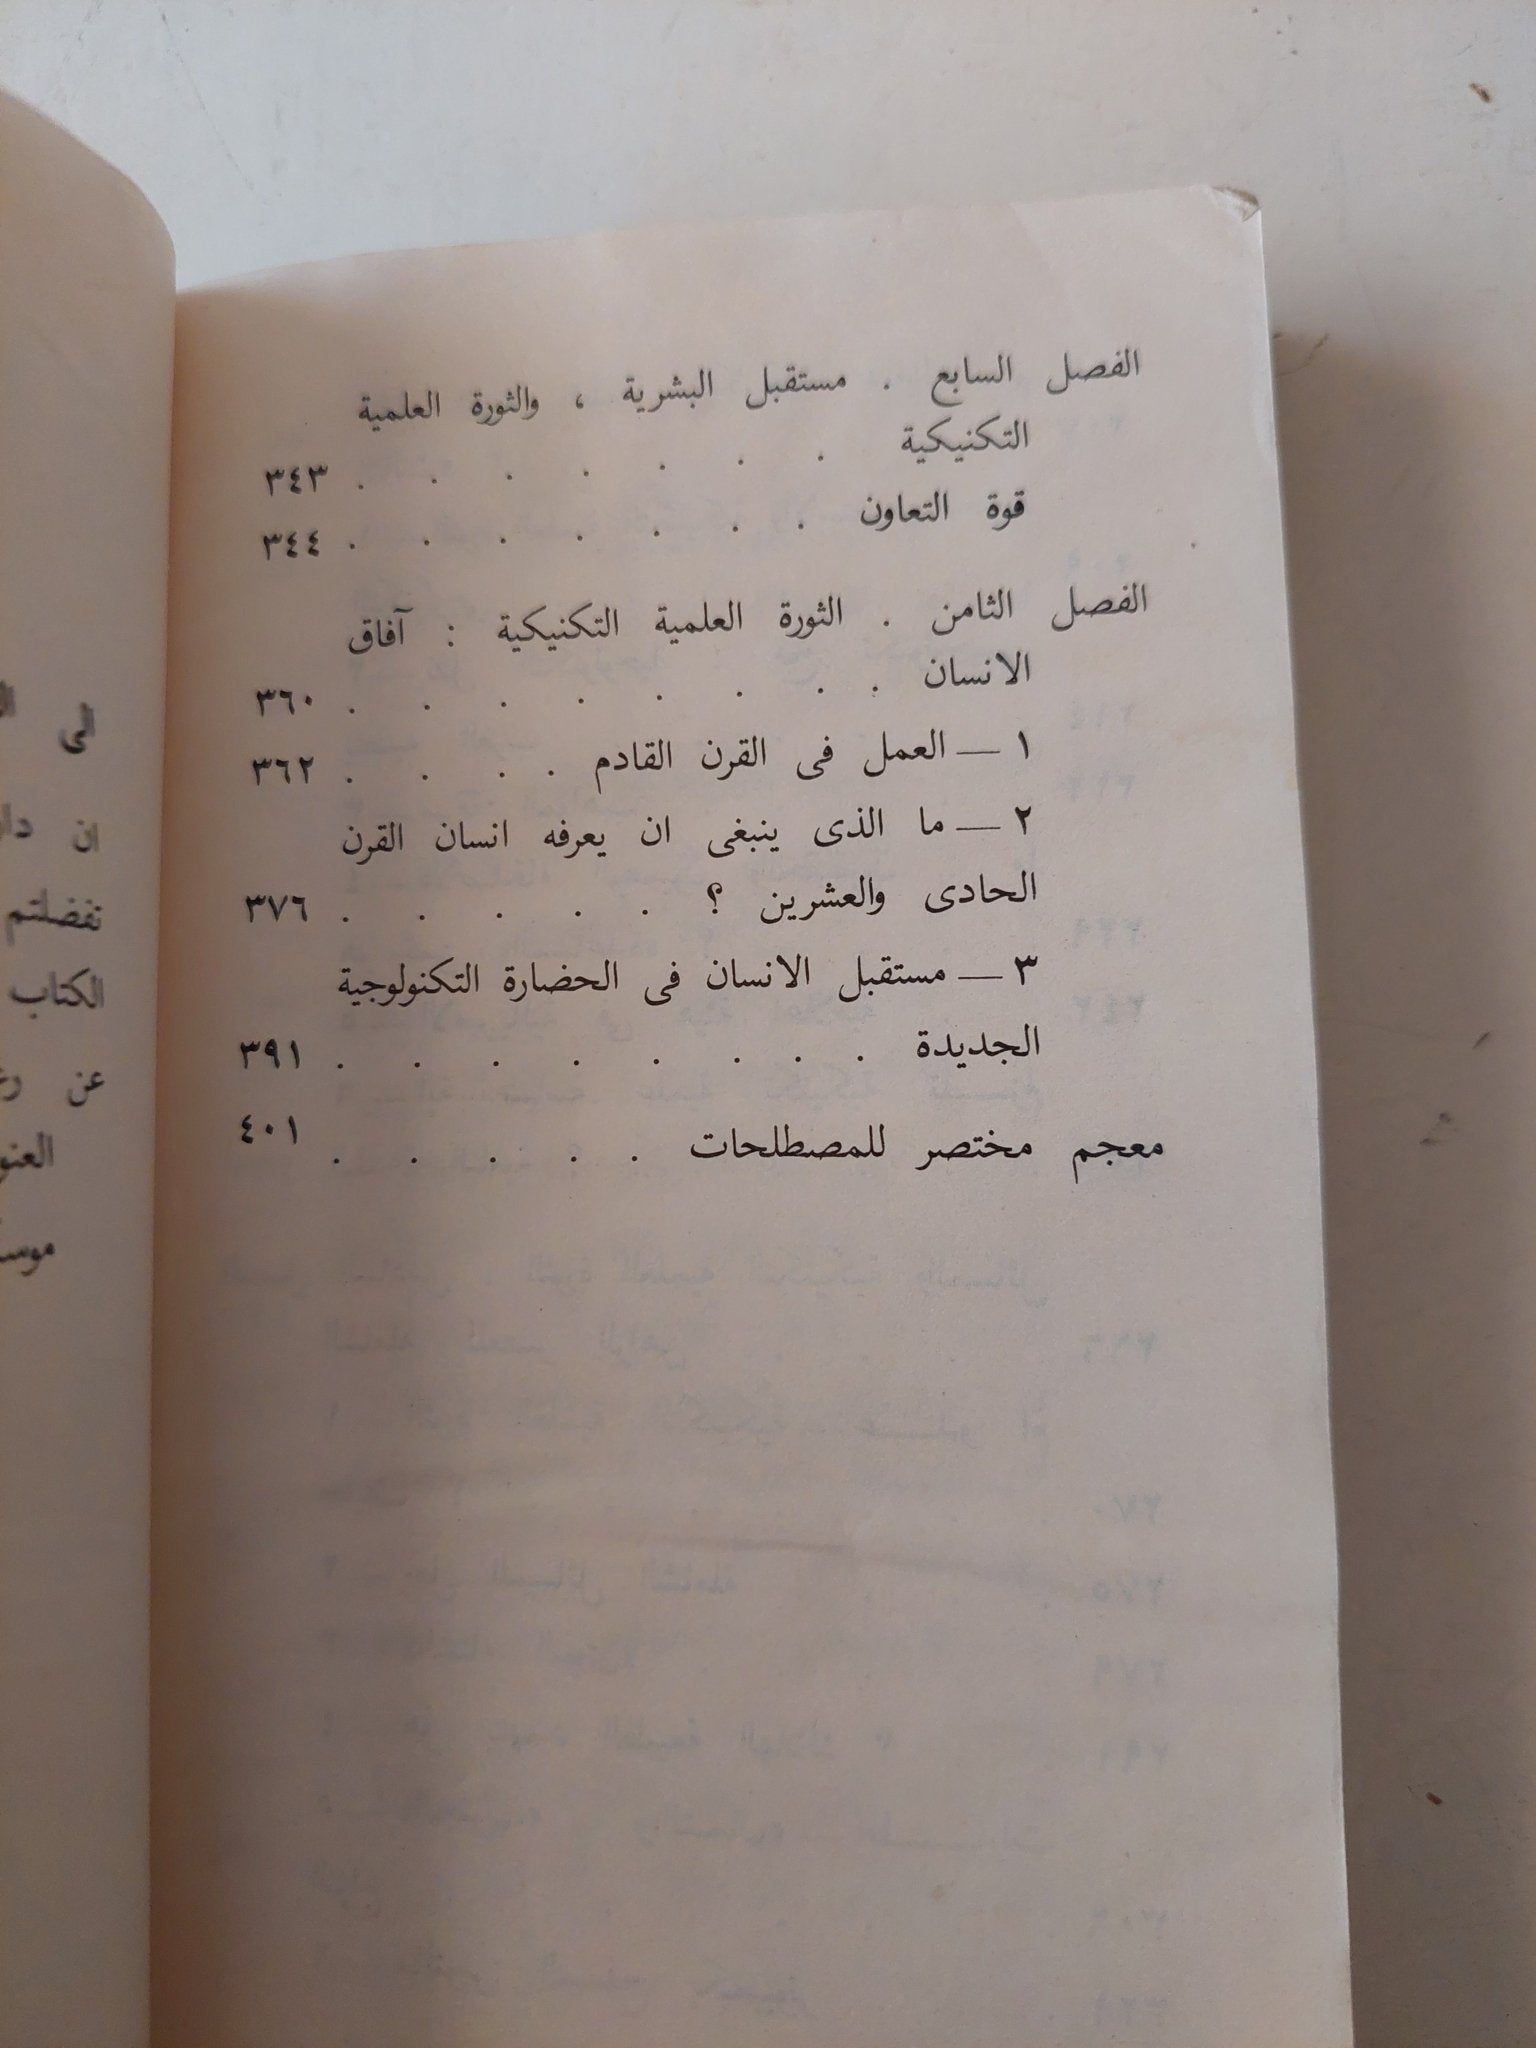 الفصل السابع . مستقبل البشرية ، والثورة العلمية
التكنيكية . . . . . . . ٣٤٣
قوة التعاون . . . . . . . ٣٤٤
الفصل الثامن . الثورة العلمية التكنيكية : آفاق
الانسان . . . . . . . . ٣٦٠
١ — العمل فى القرن القادم . . . . ٣٦٢
٢ — ما الذى ينبغى ان يعرفه انسان القرن
الحادى والعشرين ؟ . . . . . ٣٧٦
٣ — مستقبل الانسان فى الحضارة التكنولوجية
الجديدة . . . . . . . ٣٩١
معجم مختصر للمصطلحات . . . . . ٤٠١
الى
ان
تفضلتم
الكتاب
عن